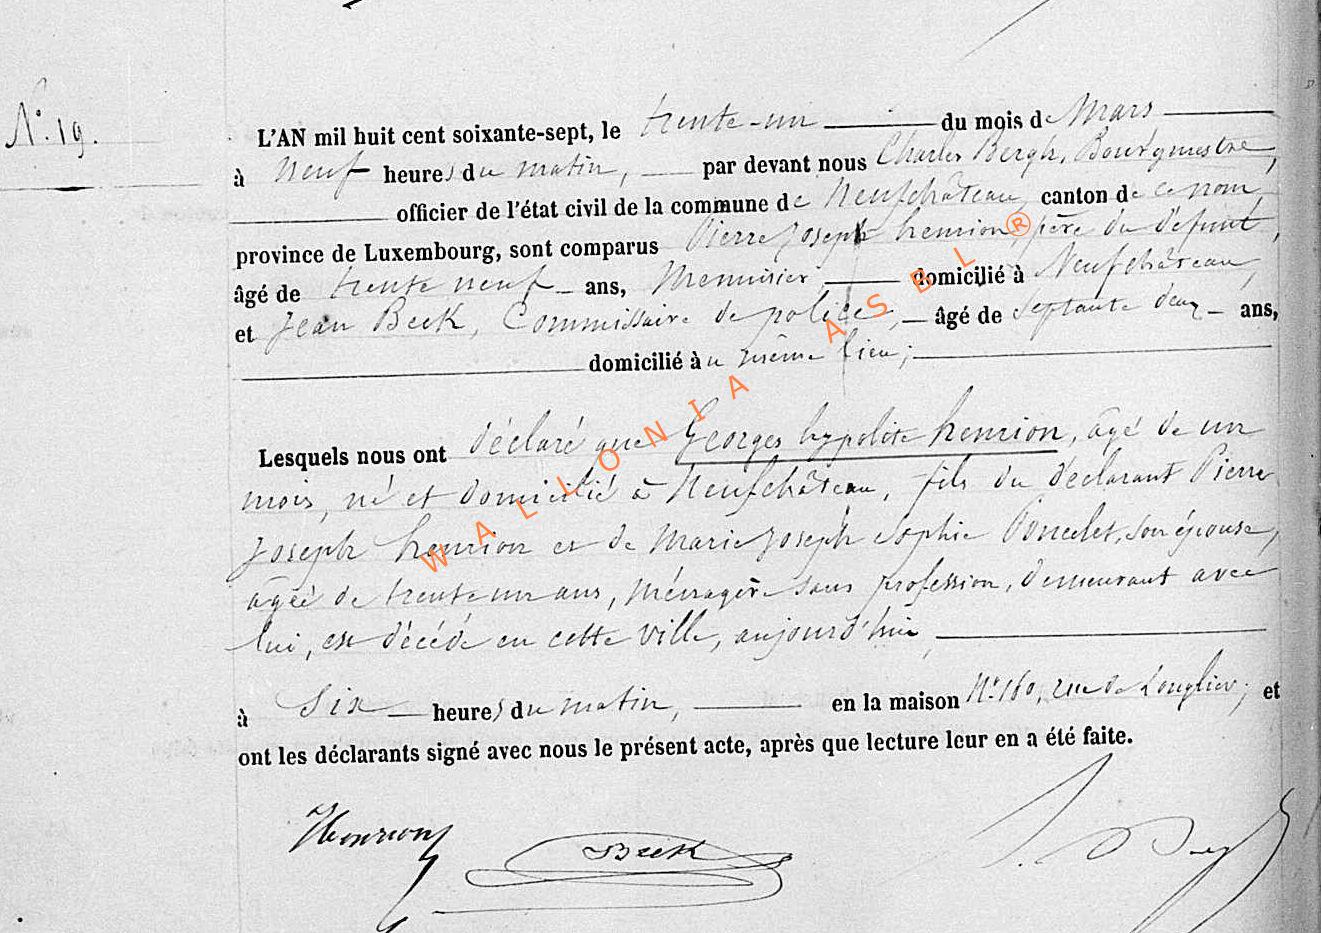 N° 19.
L'AN mil huit cent soixante-sept, le trente-un du mois de Mars
à neuf heures du matin, par devant nous Charles Bergh, Bourgmestre,
officier de l'état civil de la commune de Neufchâteau, canton de ce nom,
province de Luxembourg, sont comparus Pierre Joseph henrion, père du défunt,
âgé de trente neuf ans, Menuisier, domicilié à Neufchâteau,
et Jean Beck, Commissaire de police, âgé de septante deux ans,
domicilié au même lieu;
Lesquels nous ont déclaré que Georges hypolite henrion, âgé de un
mois, né et domicilié à Neufchâteau, fils du déclarant Pierre
Joseph henrion et de Marie Joseph Sophie Poncelet, son épouse,
âgée de trente un ans, ménagère sans profession, demeurant avec
lui, est décédé en cette ville, aujourd'hui,
à six heures du matin, en la maison N° 180, rue de Longlier; et
ont les déclarants signé avec nous le présent acte, après que lecture leur en a été faite.
Henrion
Beck
WALLONIA ASBL®